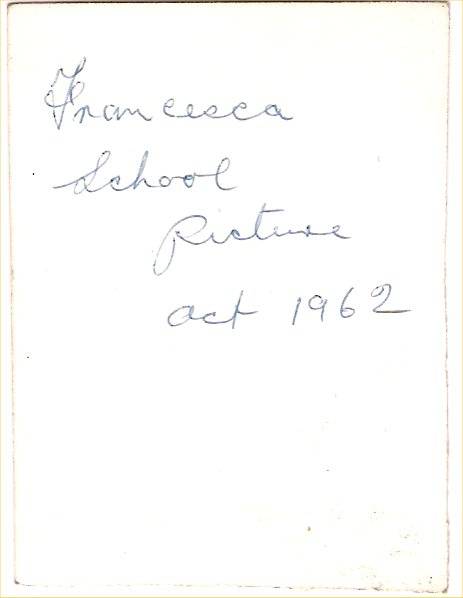 Francesca
School
Picture
Oct 1962